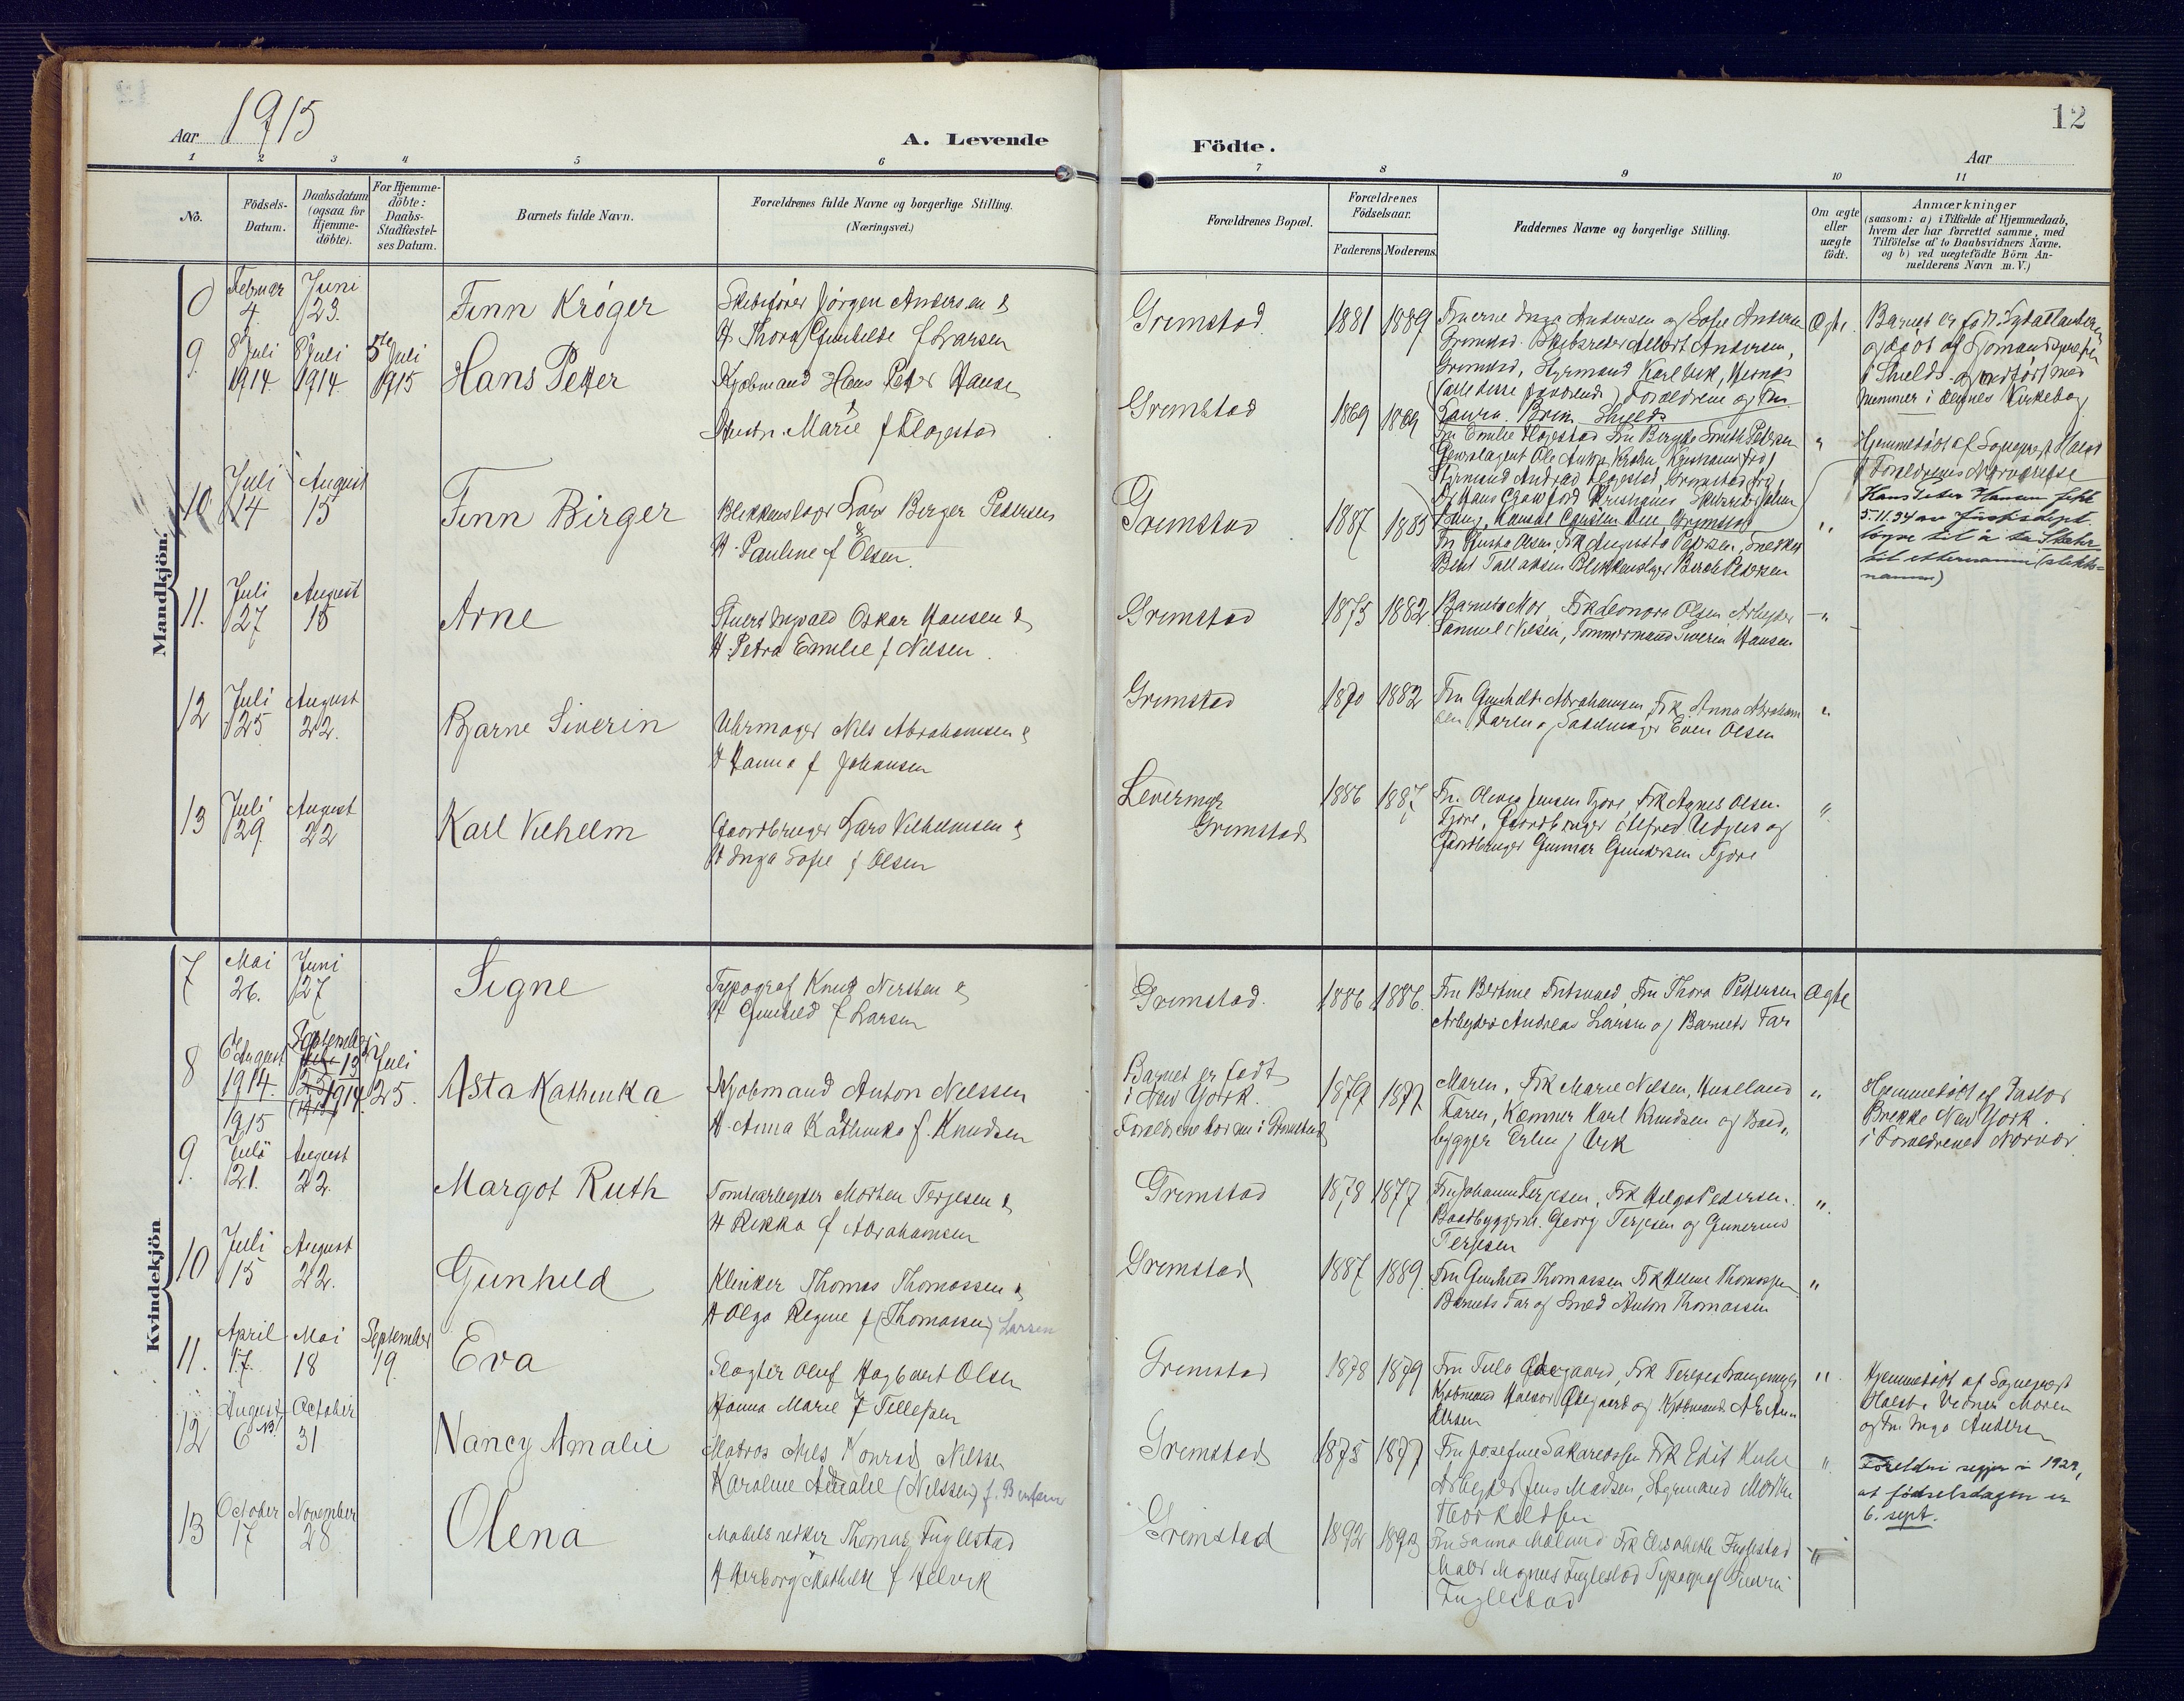 12
Aar 1915
A. Levende Födte.
Aar
1 2 3 4 5 6 7 8 9 10 11
No.
Födsels-Datum.
Daabsdatum (ogsaa for Hjemme-döbte).
For Hjemme-döbte: Daabs-Stadfæstel-ses Datum.
Barnets fulde Navn.
Forældrenes fulde Navne og borgerlige Stilling.
(Næringsvei.)
Forældrenes Bopæl.
Forældrenes Födselsaar.
Faderens Moderens
Faddernes Navne og borgerlige Stilling.
Om ægte eller uægte födt.
Anmærkninger
(saasom: a) i Tilfælde af Hjemmedaab,
hvem der har forrettet samme, med
Tilföielse af to Daabsvidners Navne.
og b) ved uægtefödte Börn An-
melderens Navn m. V.)
Mandkjön.
0 Februar 4. Juni 23.
Finn Kröger
Skibsförer Jörgen Andersen &
H. Thora Gunhilde f Larsen
Grimstad. 1881 1889
Fruerne Inga Andersen og Sofie Andersen
Grimstad. Skibsreder Albert Andersen,
Grimstad, Styrmand Karl
Forældrene og Fru
Laura Shields
Ægte.
Barnet er
og döbt af Sjömandspresten
i Shields og indfört med
nummer i Kirkebog
9. 8 Juli 1914 8 Juli 1914 5te Juli 1915
Hans Petter
Kjöbmand Hans Peter Hansen
&
Marie f Flagestad
Grimstad 1869 1889
Fru Emilie Flagestad Fru Smith Petersen
Generalagent Ole
Styrmand Andreas Flagestad, Grimstad
"
Hjemmedöbt af Sogneprest Holst
i Forældrenes Nærværelse
Hans Peter Hansen fikk
5.11.34 av Justisdept.
til å ta
til etternavn (slekts-
navn)
10 Juli 14 August 15
Finn Birger
Blikkenslager Lars Birger Pedersen
&
H. Pauline f Olsen.
Grimstad 1887 1885
Fru Olsen, Frk Augusta Pedersen, Snedker
Bent Tallaksen Blikkenslager Pedersen
"
11. Juli 27 August 15
Arne
Stuert Ingvald Oskar Hansen &
H. Petra Emilie f Nilsen.
Grimstad 1875 1882
Barnets Mor, Frk Leonora Olsen Arbeider
Samuel Nilsen, Tömmermand Severin Hansen
"
12 Juli 25 August 22.
Bjarne Siverin
Uhrmager Nils Abrahamsen &
H Hanna f Johansen
Grimstad 1870 1882
Fru Gunhilde Abrahamsen, Frk Anna Abraham
sen, Faren og Sadelmager Even Olsen
"
13 Juli 29. August 22
Karl Vilhelm
Gaardbruger Lars Vilhelmsen &
H Inga Sofie f Olsen
Levermyr
Grimstad
1886 1887
Fru Olivia Jensen Fjære, Frk Agnes Olsen
Fjære, Gaardbruger Alfred Udjus og
Gaardbruger Gunnar Gundersen Fjære
"
Kvindekjön
7 Mai 26. Juni 27
Signe
Typograf Knut Nersten &
H Gunhild f Larsen
Grimstad. 1886 1886.
Fru Bertine Fritsvold, Fru Thora Pettersen
Arbeider Andreas Larsen og Barnets Far
Ægte
8 6 August 1914 1915 September 13 1914 Juli 25.
Asta Kathinka
Kjöbmand Anton Nilssen
H. Anna Kathinka f. Knudsen
Barnet er födt
i New York.
Forældrene bor nu i Grimstad
1879 1877
Moren, Frk Marie Nilsen,
Faren, Kæmner Karl Knudsen og Baad-
bygger Erling Urk
"
Hjemmedöbt af Pastor
Brekke New York.
i Forældrenes Nærvær.
9. Juli 21. August 22.
Margot Ruth
Tomtearbeider Morten Terjesen &
H Rikka f Abrahamsen
Grimstad 1878 1877
Fru Johanne Terjesen, Frk Helga Pedersen.
Baadbygger Georg Terjesen og Gunerius
Terjesen
"
10 Juli 15 August 22.
Gunhild
Klinker Thomas Thomassen &
H Olga Regine f (Thomassen) Larsen
Grimstad 1887 1889.
Fru Gunhild Thomassen Frk Helene Thomassen
Barnets Far og Smed Anton Thomassen
"
11. April 17. Mai 18 September 19.
Eva
Slagter Oluf Hagbart Olsen
Hanna Marie f Tellefsen
Grimstad 1878 1879
Fru Tula Ødegaard, Frk Terese
Kjöbmand Halvor Ødegaard og Kjöbmand A E An
dersen
"
Hjemmedöbt af Sogneprest
Holst. Vidner Moren
og Fru Inga Andersen
12 August 6 NB! October 31
Nancy Amalie
Matros Nils Konrad Nilssen
Karoline Amalie (Nilssen) f. Berntsen
Grimstad 1875 1877
Fru Josefine Sakariassen Frk Edit
Arbeider Jens Madsen, Styrmand
Thorkildsen
"
Foreldri segjer i 1929,
at födselsdagen er
6. sept.
13 October 17 November 28
Olena
Möbelsnekker Thomas Fuglestad
&
H Herborg Mathilde f Helvik
Grimstad 1892 1893
Fru Sanna Frk Elisabeth Fuglestad
Magnus Fuglestad Typograf
Fuglestad
"